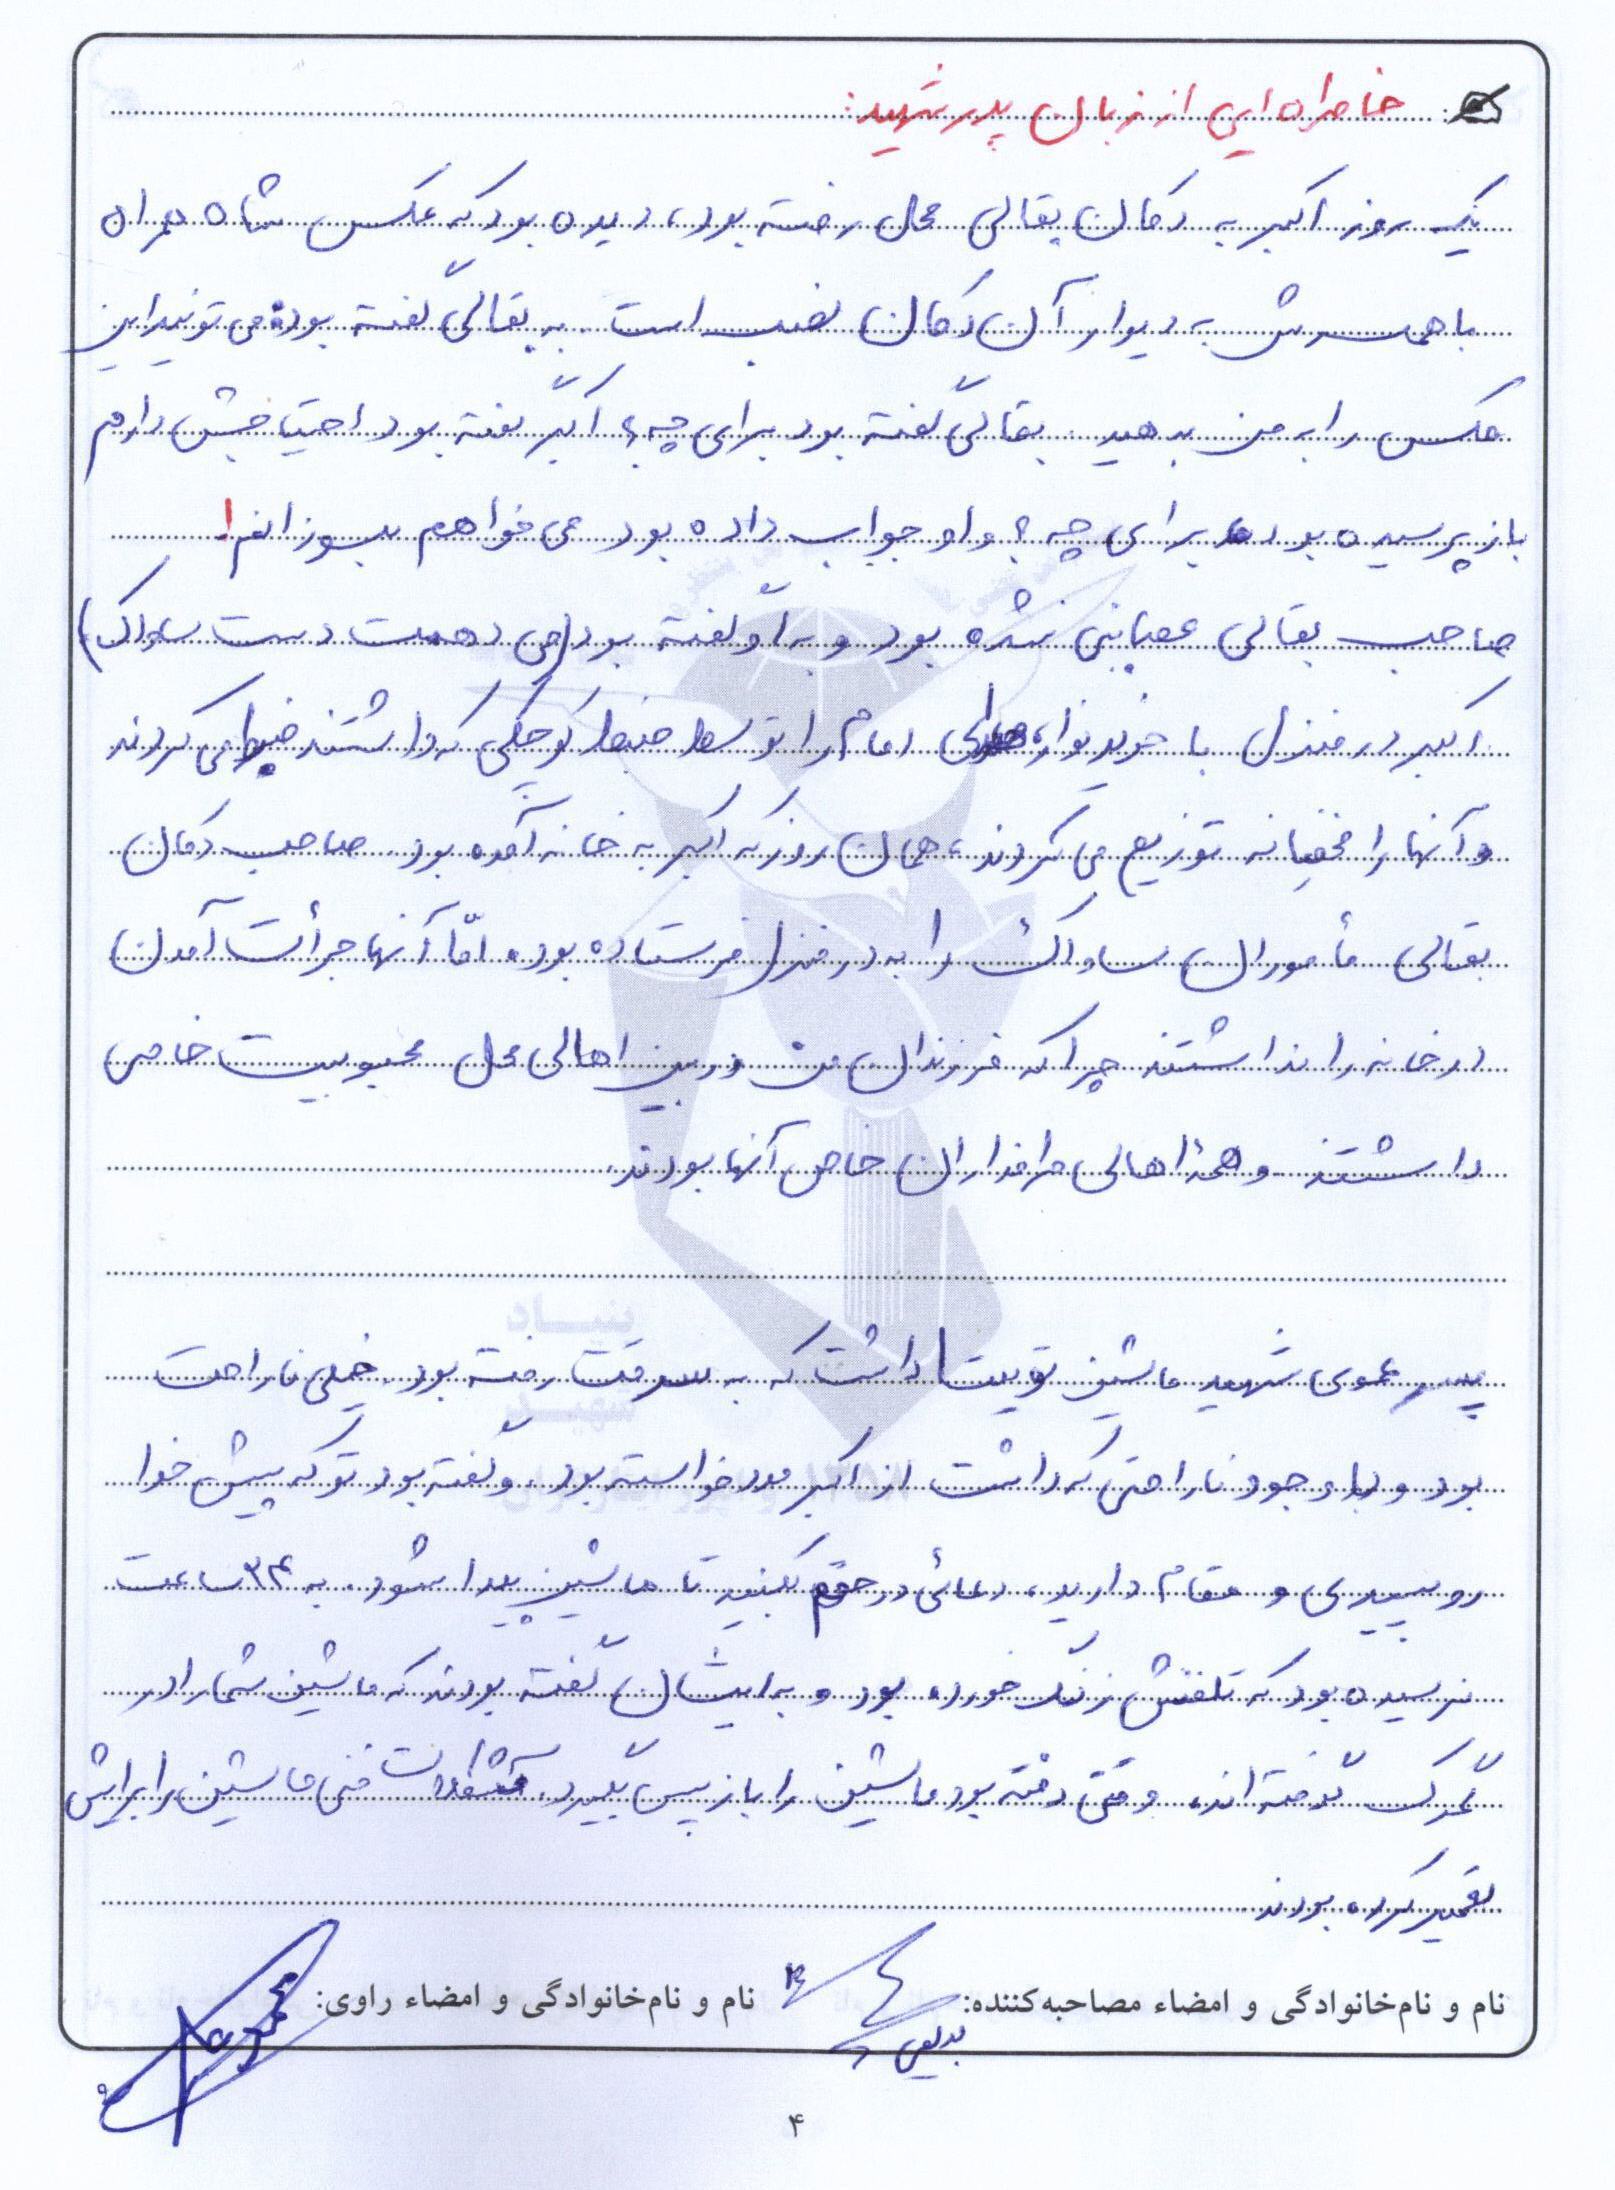 خاطره ایی از زبان پدر شهید:
یک روز اکبر به دکان بقالی محل رفته بود، دیده بود که عکس شاه همراه
با همسرش به دیوار آن دکان نصب است. به بقالی گفته بود می تونید این
عکس را به من بدهید. بقالی گفته بود برای چه؟ اکبر گفته بود احتیاجش دارم
باز پرسیده بود برای چه؟ و او جواب داده بود می خواهم بسوزانم!
صاحب بقالی عصبانی شده بود و به او گفته بود (می دهمت دست ساواک)
اکبر در منزل با خرید نوار، امام را توسط ضبط کوچکی که داشتند ضبط می کردند
و آنها را مخفیانه توزیع می کردند، همان روز که اکبر به خانه آمده بود. صاحب دکان
بقالی مأموران ساواک را به در منزل فرستاده بود. امّا آنها جرأت آمدن
در خانه را نداشتند چرا که فرزندان من در بین اهالی محل محبوبیت خاصی
داشتند و همۀ اهالی طرفداران خاص آنها بودند.
پسر عموی شهید ماشین تویتا داشت که به سرقت رفته بود. خیلی ناراحت
بود و با وجود ناراحتی که داشت از اکبر مدد خواسته بود. و گفته بود تو که پیش خدا
رو سپیدی و مقام دارید، دعائی در حقم بکنید تا ماشین پیدا شود. به ۲۴ ساعت
نرسیده بود که تلفنش زنگ خورده بود و به ایشان گفته بودند که ماشین شما را در
گرفته اند، وقتی رفته بود ماشین را باز پس بگیرد. مشکلات فنی ماشین را برایش
تعمیر کرده بودند
نام و نام‌خانوادگی و امضاء مصاحبه‌کننده:
نام و نام‌خانوادگی و امضاء راوی:
۴